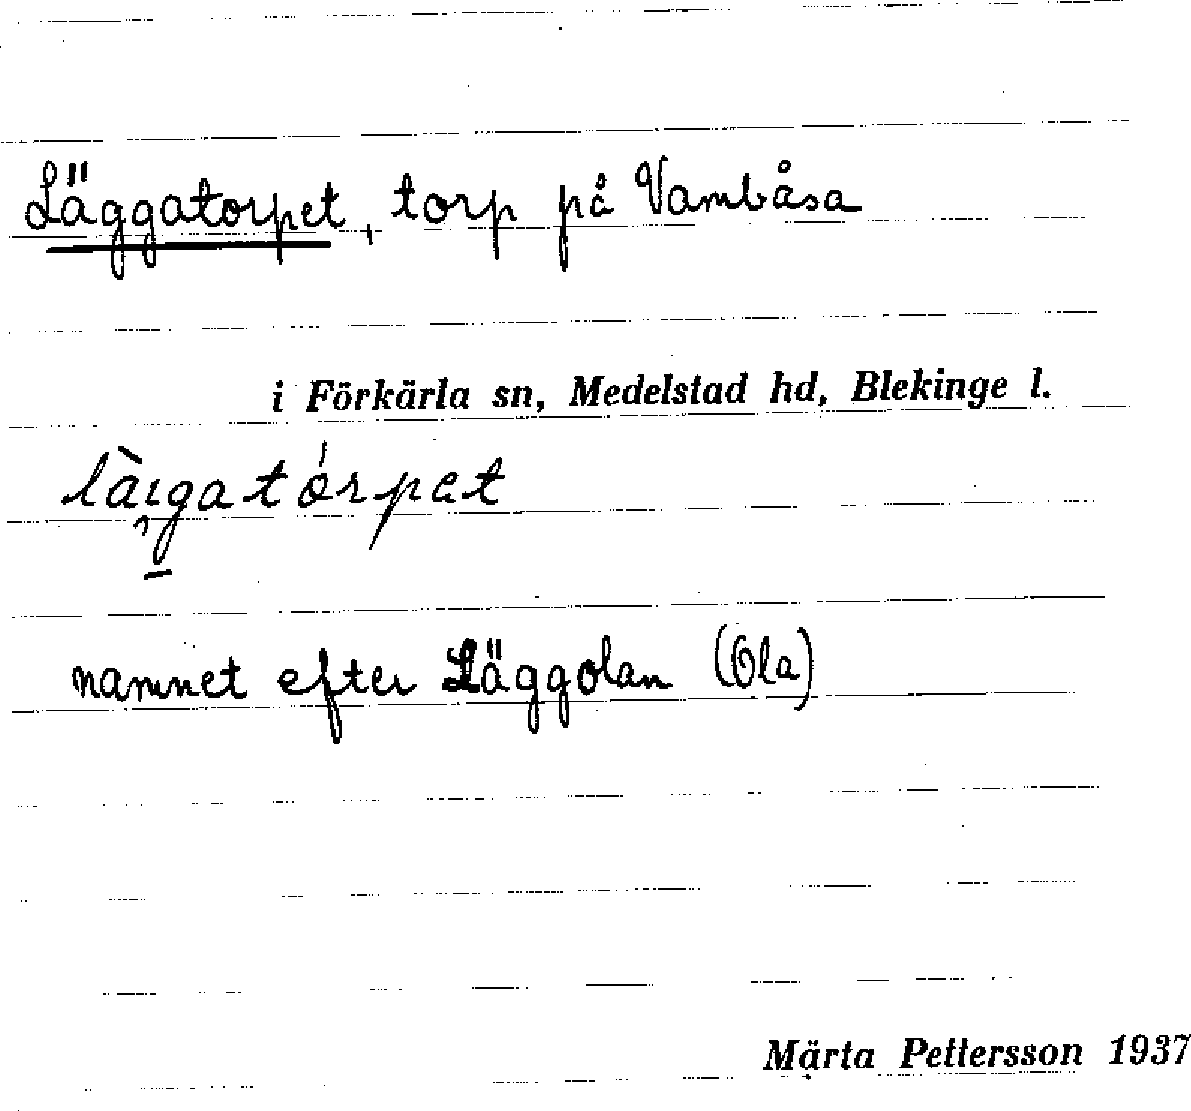 Läggatorpet, torp på Vambåsa
i Förkärla sn, Medelstad hd, Blekinge l.
namnet efter Läggolan (Ola)
Märta Pettersson 1937